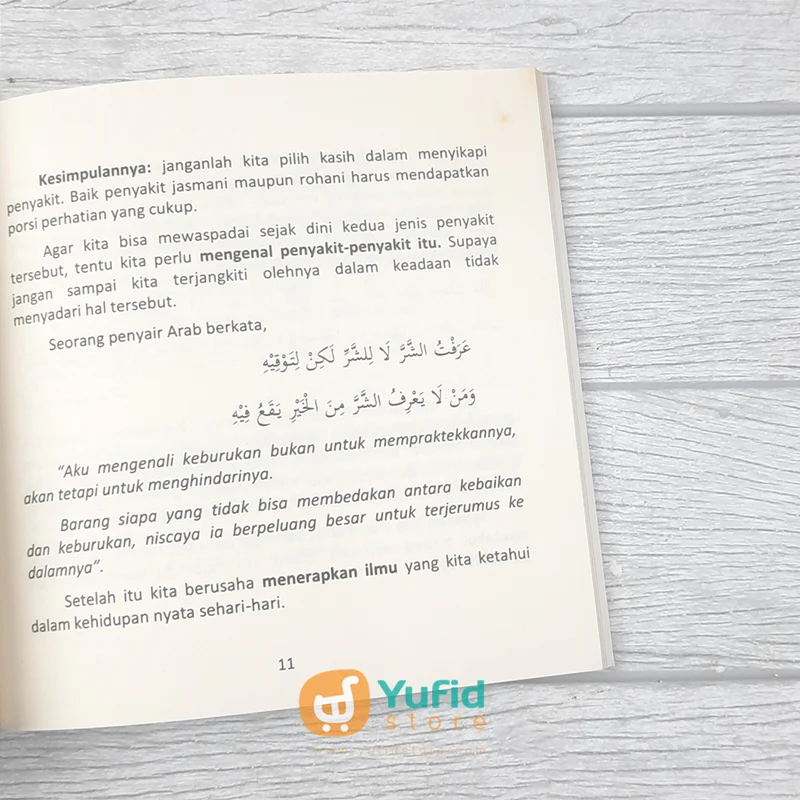 Kesimpulannya: janganlah kita pilih kasih dalam menyikapi
penyakit. Baik penyakit jasmani maupun rohani harus mendapatkan
porsi perhatian yang cukup.
Agar kita bisa mewaspadai sejak dini kedua jenis penyakit
tersebut, tentu kita perlu mengenal penyakit-penyakit itu. Supaya
jangan sampai kita terjangkiti olehnya dalam keadaan tidak
menyadari hal tersebut.
Seorang penyair Arab berkata,
عَرَفْتُ الشَّرَّ لَا لِلشَّرِّ لَكِنْ لِتَوْقِيْهِ
وَمَنْ لَا يَعْرِفُ الشَّرَّ مِنَ الْخَيْرِ يَقَعُ فِيْهِ
“Aku mengenali keburukan bukan untuk mempraktekkannya,
akan tetapi untuk menghindarinya.
Barang siapa yang tidak bisa membedakan antara kebaikan
dan keburukan, niscaya ia berpeluang besar untuk terjerumus ke
dalamnya”.
Setelah itu kita berusaha menerapkan ilmu yang kita ketahui
dalam kehidupan nyata sehari-hari.
11
Yufid
store
www.yufidstore.com